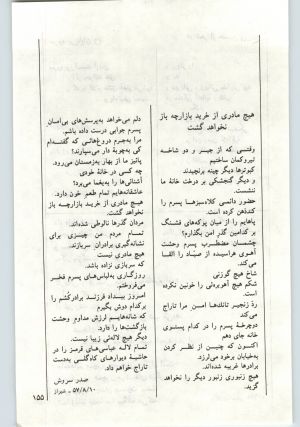 هیچ مادری از خرید بازارچه باز
نخواهد گشت
وقتی که از جیبر و دو شاخه
تیروکمان ساختیم
کبوترها دیگر چینه برنچیدند
و دیگر گنجشگی بر درخت خانهٔ ما
ننشست.
حضور دائمی کلاه‌سبزها پسرم را
کندذهن کرده است.
پاهایم را از میان پوکه‌های فشنگ
بر کدامین گذر امن بگذارم؟
چشمان مضطرب پسرم وحشت
آهوی هراسیده از صیاد را القا
می‌کند
شاخ هیچ گوزنی
شکم هیچ آهوبره‌ئی را خونین نکرده
است
رد زنجیر تانك‌ها امن مرا تاراج
می‌کند
دوچرخهٔ پسرم را در کدام پستوی
خانه جای دهم
اکنون که چنین از نظر کردن
به‌خیابان برخود می‌لرزد.
برادرها غریبه شده‌اند.
هیچ زنبوری زنبور دیگر را نخواهد
گزید.
دلم می‌خواهد به‌پرسش‌های بی‌امان
پسرم جوابی درست داده باشم.
مرا به‌جرم دروغ‌هائی که گفته‌ام
کی به‌چوبهٔ دار می‌سپارند؟
پائیز ما از بهار به‌زمستان می‌رود.
چه کسی در خانهٔ خودی
آشنائی را به‌یغما می‌برد؟
عاشقانه‌هایم تمام طعم خون دارد.
هیچ مادری از خرید بازارچه باز
نخواهد گشت.
مردان گذرها نالوطی شده‌اند.
تمام مردم من چیزی برای
نشانه‌گیری برادران سربازند.
هیچ مادری نیست
که سربازی نزاده باشد.
روزگاری به‌لباس‌های پسرم فخر
می‌فروختم.
امروز بیداد فرزند برادرکُشم را
برکدام دوش بگیرم
که شانه‌هایم لرزش مداوم وحشت
بازگشت‌ها را دارد.
دیگر هیچ لاله‌ئی زیبا نیست.
تمام لاله عباسی‌های قرمز را در
حاشیهٔ دیوارهای کاه‌گلی به‌دست
تاراج خواهم داد.
صدر سروش
۵۷/۸/۱۰ – شیراز
۱۵۵